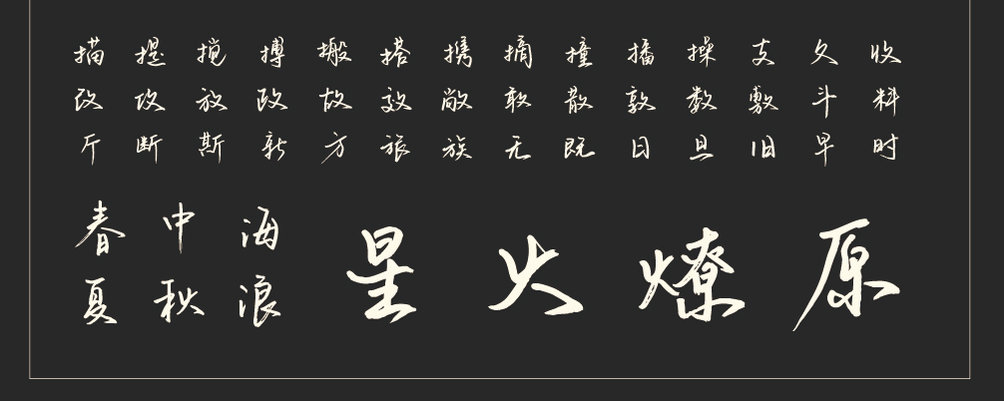 描 提 搅 搏 搬 搭 携 摘 撞 播 操 支 久 收
改 攻 放 政 故 效 敞 敢 散 敦 数 敷 斗 料
斤 断 斯 新 方 旅 族 无 既 日 旦 旧 早 时
春 中 海
夏 秋 浪
星 火 燎 原